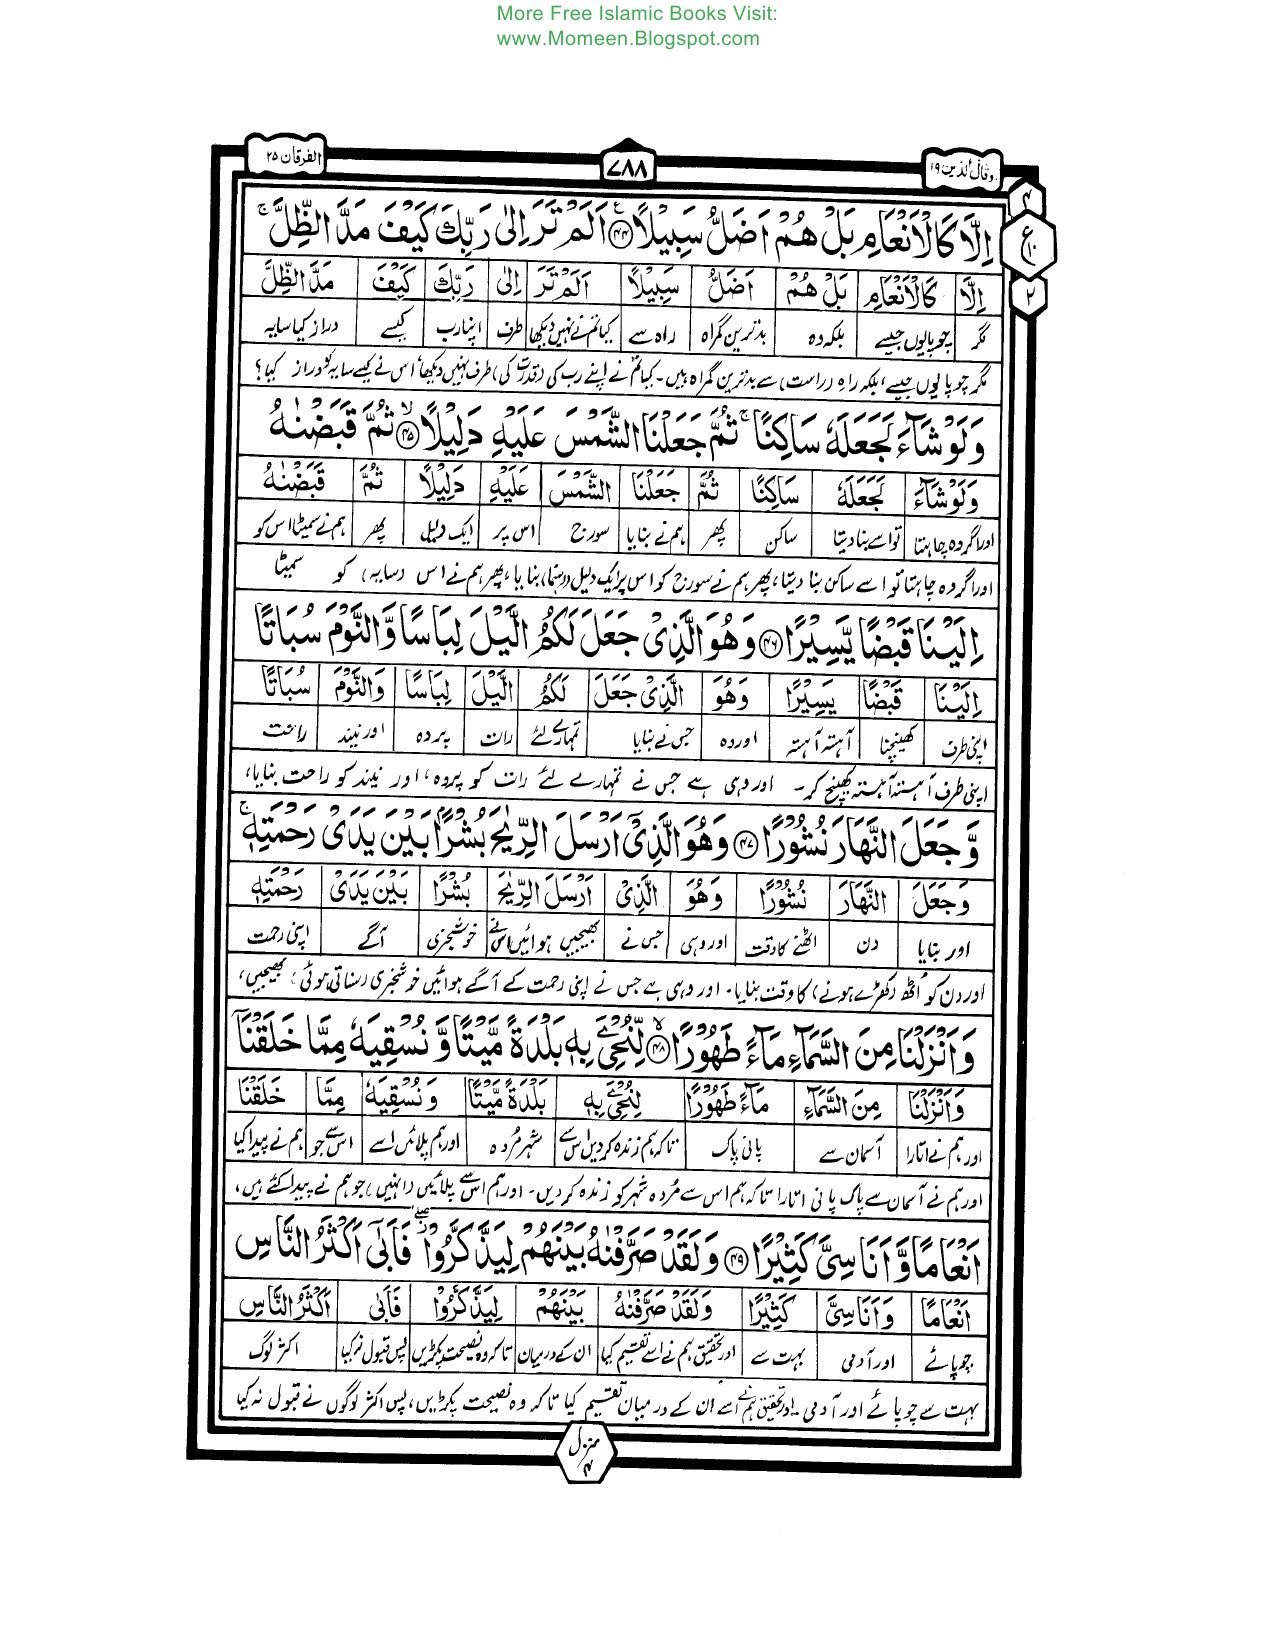 More Free Islamic Books Visit:
www.Momeen.Blogspot.com
وقال الذین ۱۹
۷۸۸
الفرقان ۲۵
۴
ع
۱۰
۲
اِلَّا كَالْاَنْعَامِ بَلْ هُمْ اَضَلُّ سَبِيْلًا ﴿۴۴﴾ اَلَمْ تَرَ اِلٰى رَبِّكَ كَيْفَ مَدَّ الظِّلَّ ۚ
اِلَّا كَالْاَنْعَامِ بَلْ هُمْ اَضَلُّ سَبِيْلًا اَلَمْ تَرَ اِلٰى رَبِّكَ كَيْفَ مَدَّ الظِّلَّ
مگر چوپایوں جیسے بلکہ وہ بدترین گمراہ راہ سے کیا تم نے نہیں دیکھا طرف اپنا رب کیسے دراز کیا سایہ
مگر چوپایوں جیسے، بلکہ راہِ (راست) سے بدترین گمراہ ہیں۔ کیا تم نے اپنے رب کی (قدرت کی) طرف نہیں دیکھا اس نے کیسے سایہ کو دراز کیا؟
وَلَوْ شَآءَ لَجَعَلَهٗ سَاكِنًا ۚ ثُمَّ جَعَلْنَا الشَّمْسَ عَلَيْهِ دَلِيْلًا ﴿۴۵﴾ ۙ ثُمَّ قَبَضْنٰهُ
وَلَوْ شَآءَ لَجَعَلَهٗ سَاكِنًا ثُمَّ جَعَلْنَا الشَّمْسَ عَلَيْهِ دَلِيْلًا ثُمَّ قَبَضْنٰهُ
اور اگر وہ چاہتا تو اسے بنا دیتا ساکن پھر ہم نے بنایا سورج اس پر ایک دلیل پھر ہم نے سمیٹا اس کو
اور اگر وہ چاہتا تو اسے ساکن بنا دیتا، پھر ہم نے سورج کو اس پر ایک دلیل (رہنما) بنایا، پھر ہم نے اس (سایہ) کو سمیٹا
اِلَيْنَا قَبْضًا يَّسِيْرًا ﴿۴۶﴾ وَهُوَ الَّذِىْ جَعَلَ لَكُمُ الَّيْلَ لِبَاسًا وَّالنَّوْمَ سُبَاتًا
اِلَيْنَا قَبْضًا يَسِيْرًا وَهُوَ الَّذِىْ جَعَلَ لَكُمُ الَّيْلَ لِبَاسًا وَالنَّوْمَ سُبَاتًا
اپنی طرف کھینچنا آہستہ آہستہ اور وہ جس نے بنایا تمہارے لئے رات پردہ اور نیند راحت
اپنی طرف آہستہ آہستہ کھینچ کر۔ اور وہی ہے جس نے تمہارے لئے رات کو پردہ، اور نیند کو راحت بنایا،
وَّجَعَلَ النَّهَارَ نُشُوْرًا ﴿۴۷﴾ وَهُوَ الَّذِىْٓ اَرْسَلَ الرِّيٰحَ بُشْرًۢا بَيْنَ يَدَىْ رَحْمَتِهٖ ۚ
وَجَعَلَ النَّهَارَ نُشُوْرًا وَهُوَ الَّذِىْٓ اَرْسَلَ الرِّيٰحَ بُشْرًا بَيْنَ يَدَىْ رَحْمَتِهٖ
اور بنایا دن اٹھنے کا وقت اور وہی جس نے بھیجیں ہوائیں اس نے خوشخبری آگے اپنی رحمت
اور دن کو اُٹھ (کھڑے ہونے) کا وقت بنایا۔ اور وہی ہے جس نے اپنی رحمت کے آگے ہوائیں خوشخبری (سناتی ہوئی) بھیجیں،
وَاَنْزَلْنَا مِنَ السَّمَآءِ مَآءً طَهُوْرًا ﴿۴۸﴾ ۙ لِّنُحْیِۦَ بِهٖ بَلْدَةً مَّيْتًا وَّنُسْقِيَهٗ مِمَّا خَلَقْنَآ
وَاَنْزَلْنَا مِنَ السَّمَآءِ مَآءً طَهُوْرًا لِنُحْیِۦَ بِهٖ بَلْدَةً مَّيْتًا وَنُسْقِيَهٗ مِمَّا خَلَقْنَا
اور ہم نے اتارا آسمان سے پانی پاک تاکہ ہم زندہ کر دیں اس سے شہر مُردہ اور ہم پلائیں اسے اس سے جو ہم نے پیدا کیا
اور ہم نے آسمان سے پاک پانی اتارا تاکہ ہم اس سے مُردہ شہر کو زندہ کر دیں۔ اور ہم اس سے پلائیں (انہیں) جو ہم نے پیدا کئے ہیں،
اَنْعَامًا وَّاَنَاسِىَّ كَثِيْرًا ﴿۴۹﴾ وَلَقَدْ صَرَّفْنٰهُ بَيْنَهُمْ لِيَذَّكَّرُوْا ۖ فَاَبٰٓى اَكْثَرُ النَّاسِ
اَنْعَامًا وَاَنَاسِىَّ كَثِيْرًا وَلَقَدْ صَرَّفْنٰهُ بَيْنَهُمْ لِيَذَّكَّرُوْا فَاَبٰٓى اَكْثَرُ النَّاسِ
چوپائے اور آدمی بہت سے اور تحقیق ہم نے اسے تقسیم کیا ان کے درمیان تاکہ وہ نصیحت پکڑیں پس قبول نہ کیا اکثر لوگ
بہت سے چوپائے اور آدمی۔ اور تحقیق ہم نے اسے ان کے درمیان تقسیم کیا تاکہ وہ نصیحت پکڑیں، پس اکثر لوگوں نے قبول نہ کیا
منزل ۴